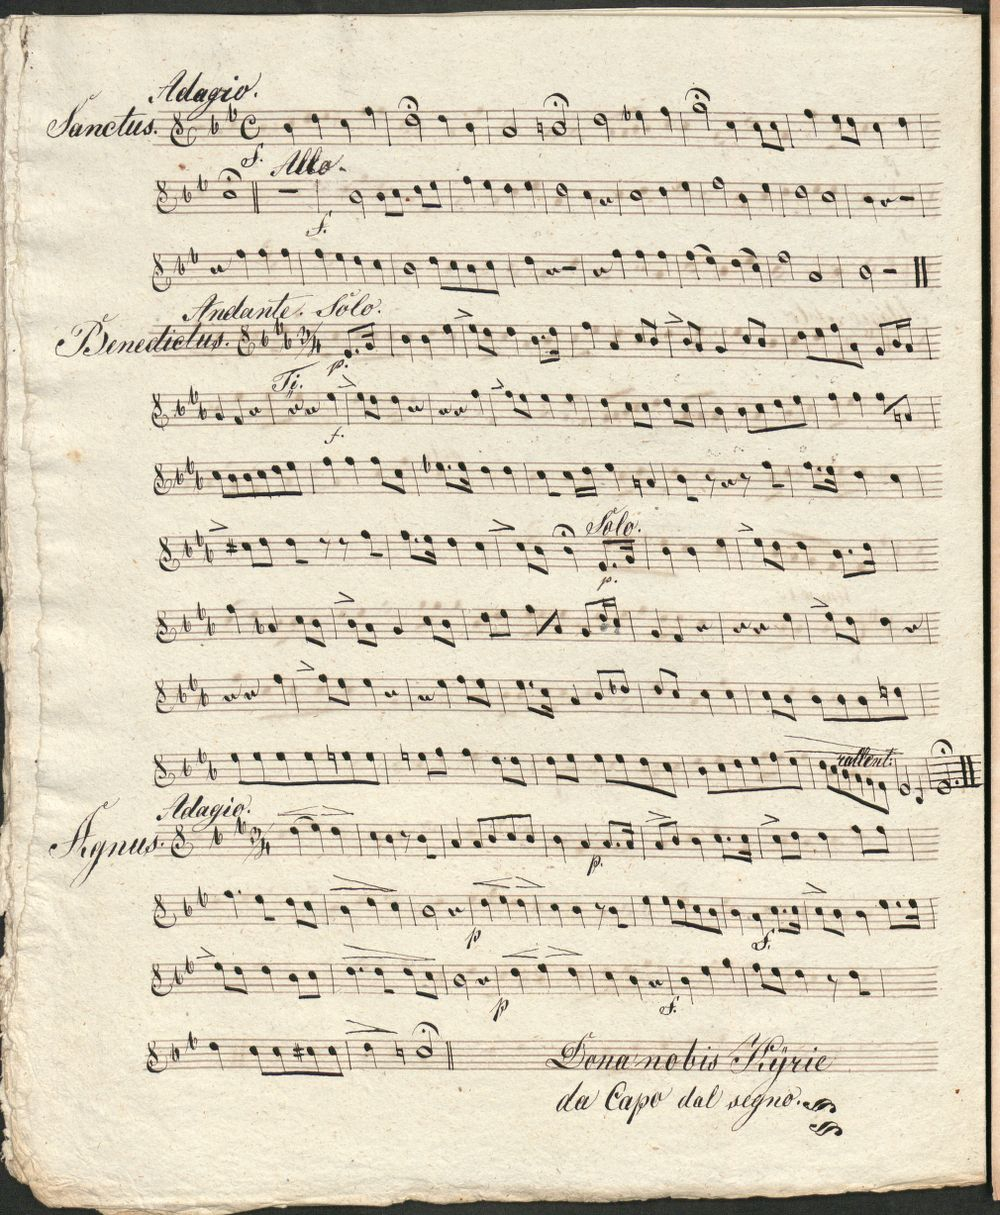 Adagio.
Sanctus.
f. Allo.
f.
Andante. Solo.
Benedictus. 3/4
p.
f.
Solo.
p.
rallent:
Adagio.
Agnus. 3/4
p.
p f.
p f.
Dona nobis Kÿrie
da Capo dal segno.